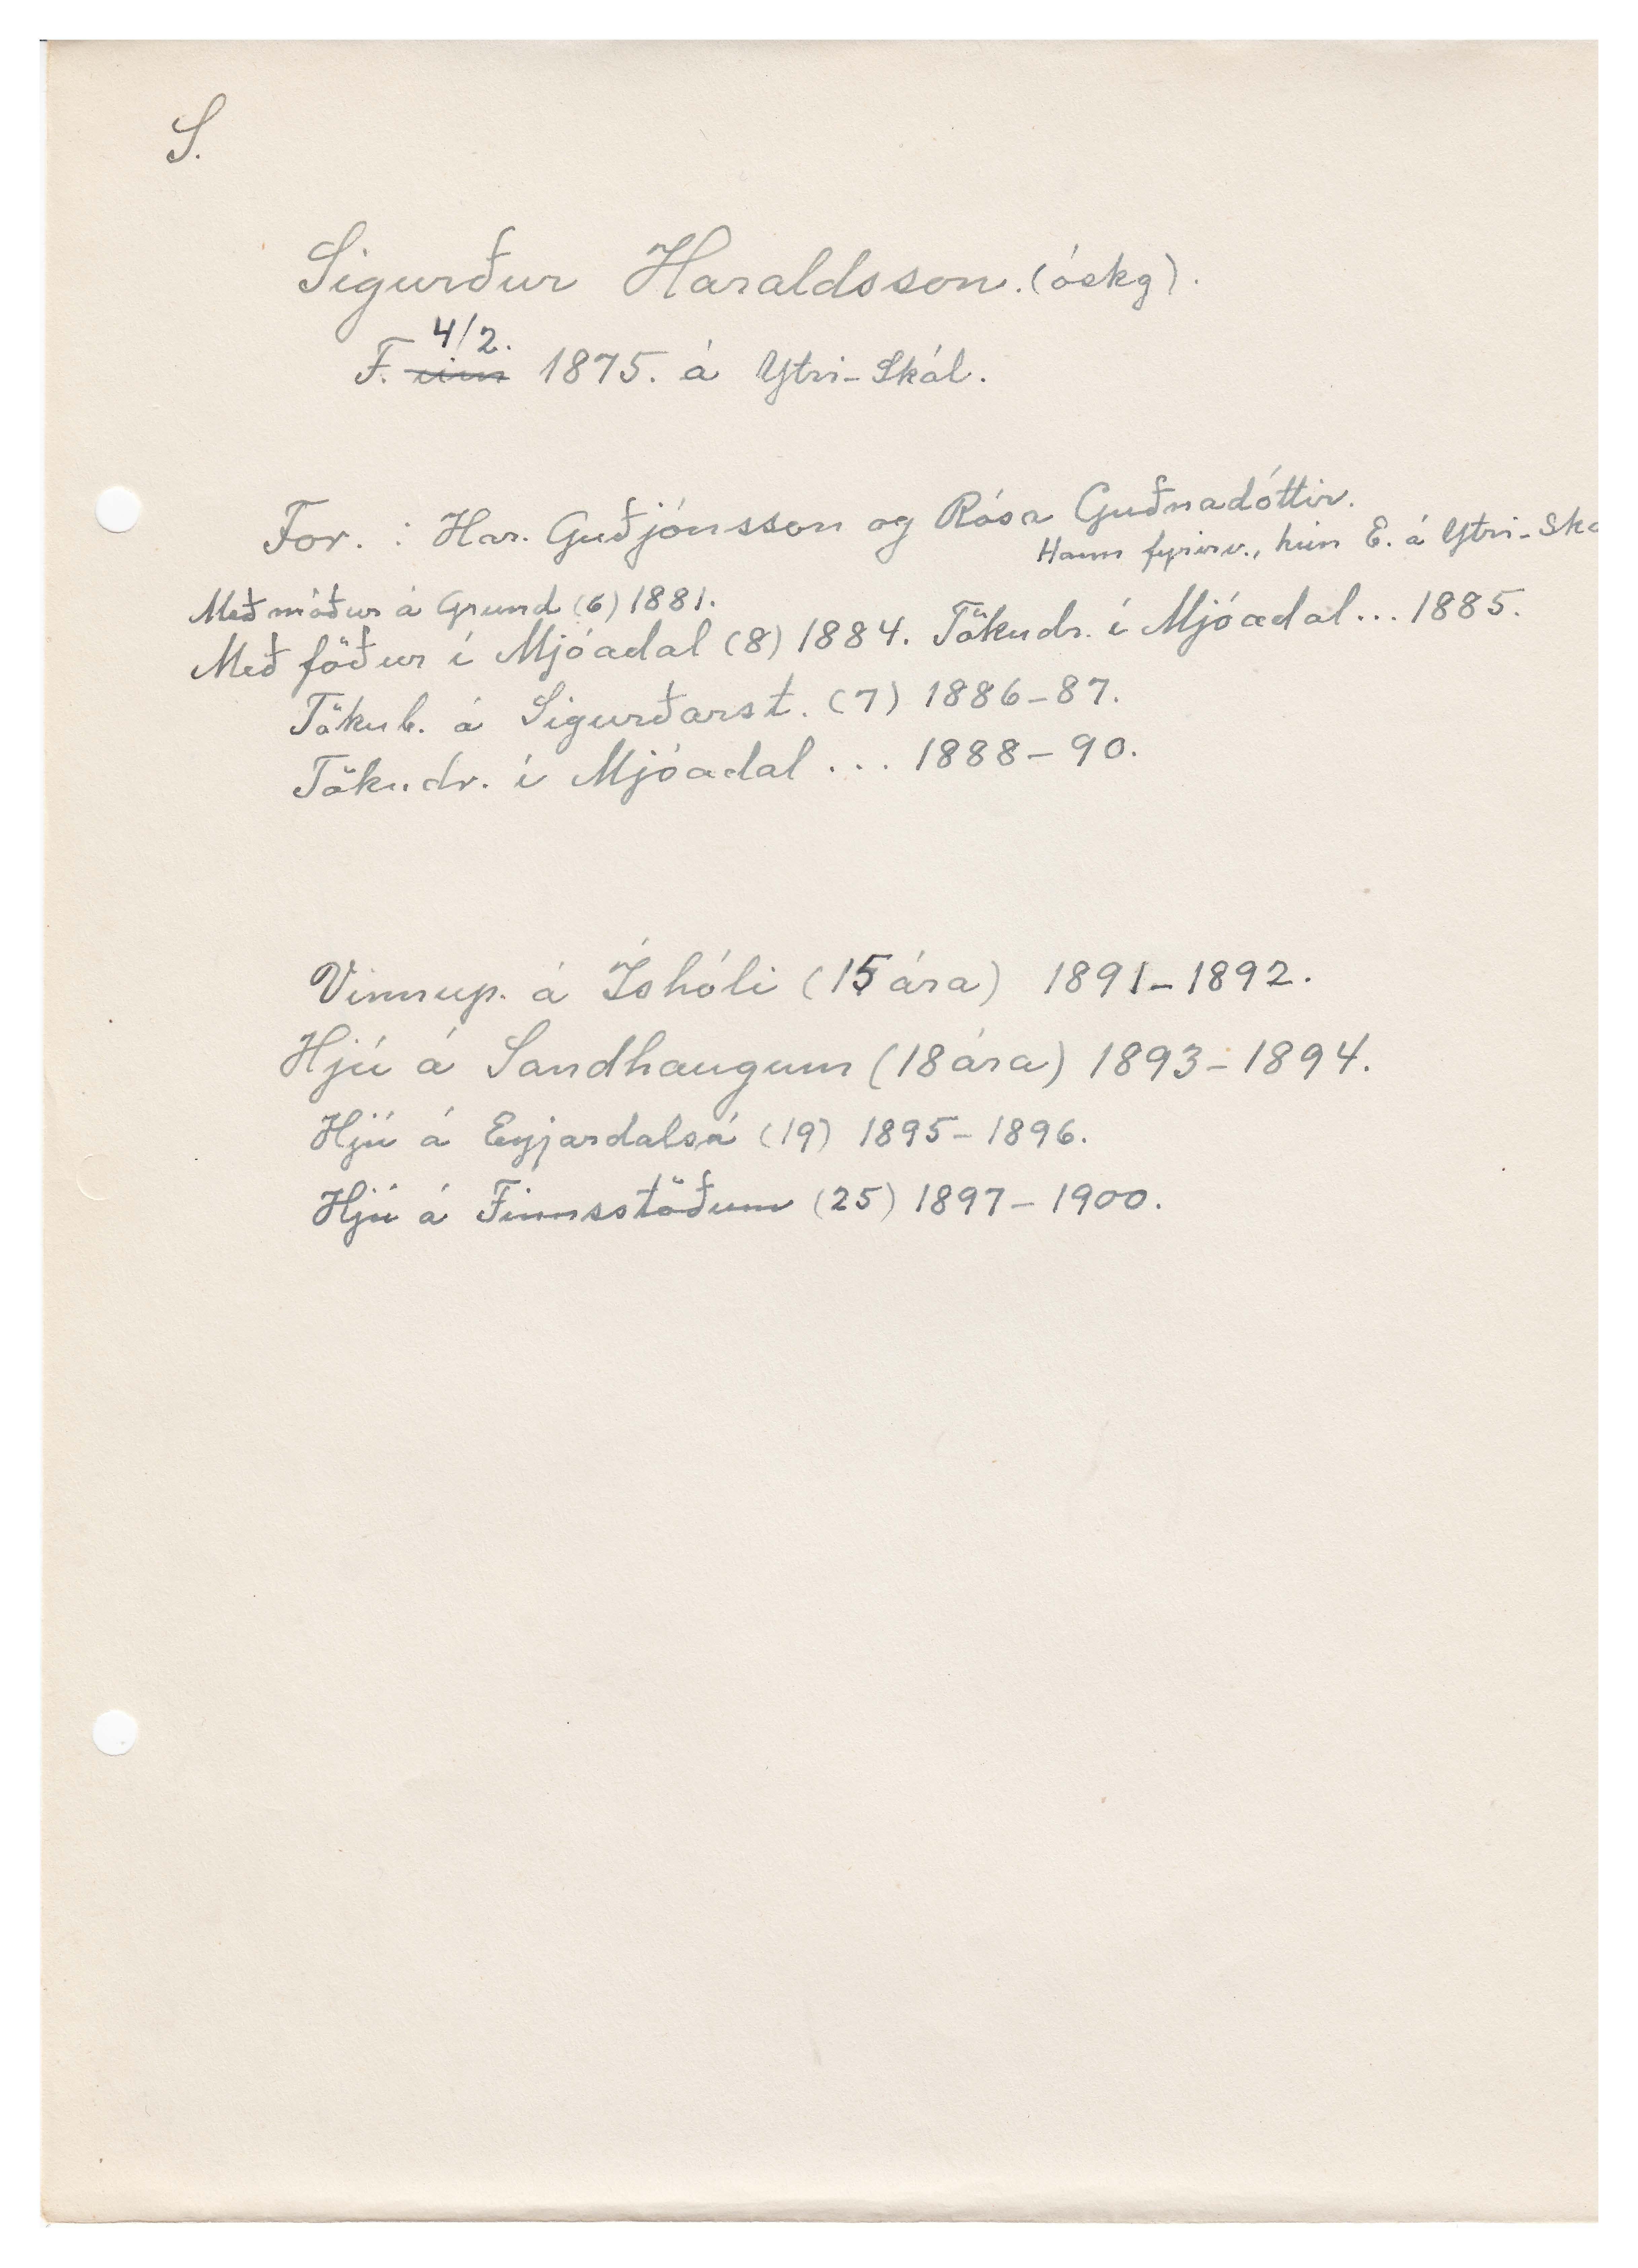 S.
Sigurður Haraldsson. (óskg).
4/2.
F. um 1875. á Ytri-Skál.
For. : Har. Guðjónsson og Rósa Guðnadóttir.
Hann fyrirv., hún E. á Ytri-Ská
Með móður á Grund (6) 1881.
Með föður í Mjóadal (8) 1884. Tökudr. í Mjóadal... 1885.
Tökub. á Sigurðarst. (7) 1886-87.
Tökudr. í Mjóadal... 1888-90.
Vinnup. á Íshóli (15 ára) 1891-1892.
Hjú á Sandhaugum (18 ára) 1893-1894.
Hjú á Eyjardalsá (19) 1895-1896.
Hjú á Finnsstöðum (25) 1897-1900.